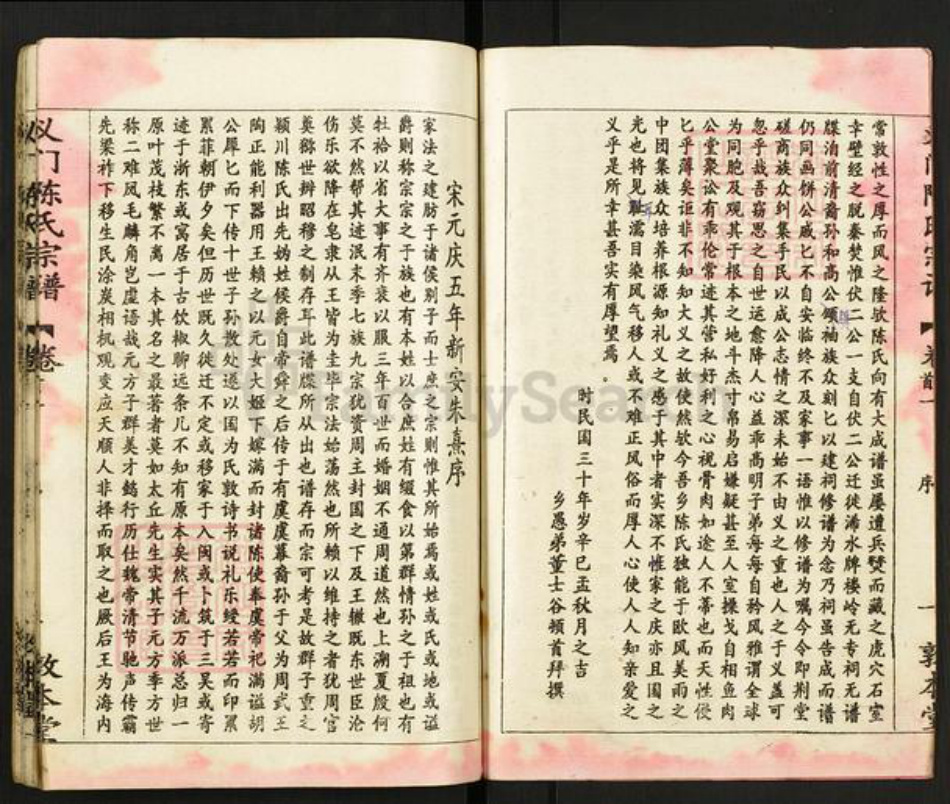 尝敦性之厚而风之隆钦陈氏向有大成谱虽屡遭兵燹而藏之虎穴石室
幸壁经之脱秦焚惟伏二公一支自伏二公迁徙浠水牌楼岭无专祠无谱
牒洎前清裔孙和高公领袖族众刻匕以建祠修谱为念乃祠虽告成而谱
仍同画饼公戚匕不自安临终不及家事一语惟以修谱为嘱今令即荆堂
磋商族众纠集手民以成公志情之深未始不由义之重也人之于义盖可
忽乎哉吾窃思之自世运愈降人心益乖高明子弟每每自矜风雅谓全球
为同胞及观其于根本之地斗杰寸帛易启嫌疑甚至人室操戈自相鱼肉
公堂聚讼有乖伦常述其营私好利之心视骨肉如途人不蒂也而天性侵
匕乎薄矣讵非不知大义之故使然钦今吾乡陈氏独能于欧风美雨之
中团集族众培养根源知礼义之感于其中者实深不惟家之庆亦且国之
光也将见耳濡目染风气移人或不难正风俗而厚人心使人人知亲爱之
义乎是所幸甚吾实有厚望焉
时民国三十年岁辛巳孟秋月之吉
乡愚弟董士谷顿首拜撰
宋元庆五年新安朱熹序
家法之建肪于诸侯别子而士庶之宗则惟其所始焉或姓或氏或地或谥
爵则称宗宗之于族也有本姓以合庶姓有缀食以第群情孙之于祖也有
牡祫以省大事有齐衰以服三年百世而婚姻不通周道然也上溯夏殷何
莫不然帮其迹泯末季七族九宗犹资周主封国之下及王辙既东世臣沦
伤乐欲降在皂隶从王皆为圭毕宗法始荡然也所赖以维持之者犹周官
奠繇世辨昭穆之制存耳此谱牒所从出也谱存而宗可考是故群子重之
颖川陈氏出先妫姓侯爵自帝舜之后传于有虞虞幕裔孙于父为周武王
陶正能利器用王赖之以元女大姬下嫁满而封诸陈使奉虞帝祀满谥胡
公犀匕而下传十世子孙散处遂以国为氏敦诗书说礼乐绶若若而印累
累菲朝伊夕矣但历世既久徙迁不定或移家于入闽或卜筑于三吴或寄
迹于浙东或寓居于古饮椒聊远条几不知有原本矣然千流万派总归一
原叶茂枝繁不离一本其名之最著者莫如太丘先生实其子元方季方世
称二难凤毛麟角岂虚语哉元方子群美才懿行历仕魏帝清节驰声传霸
先梁祚下移生民涂炭相机观变应天顺人非择而取之也厥后王为海内
义门陈氏宗谱【卷
敦本堂
序
一